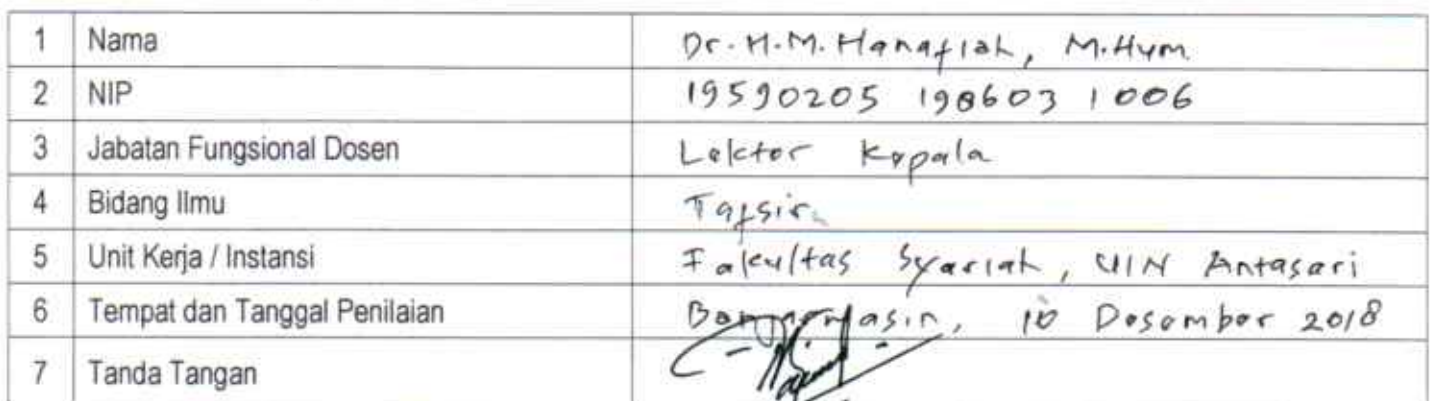 1 Nama Dr. H.M. Hanafiah, M.Hum
2 NIP 19590205 198603 1 006
3 Jabatan Fungsional Dosen Lektor Kepala
4 Bidang Ilmu Tafsir
5 Unit Kerja / Instansi Fakultas Syariah, UIN Antasari
6 Tempat dan Tanggal Penilaian Banjarmasin, 10 Desember 2018
7 Tanda Tangan